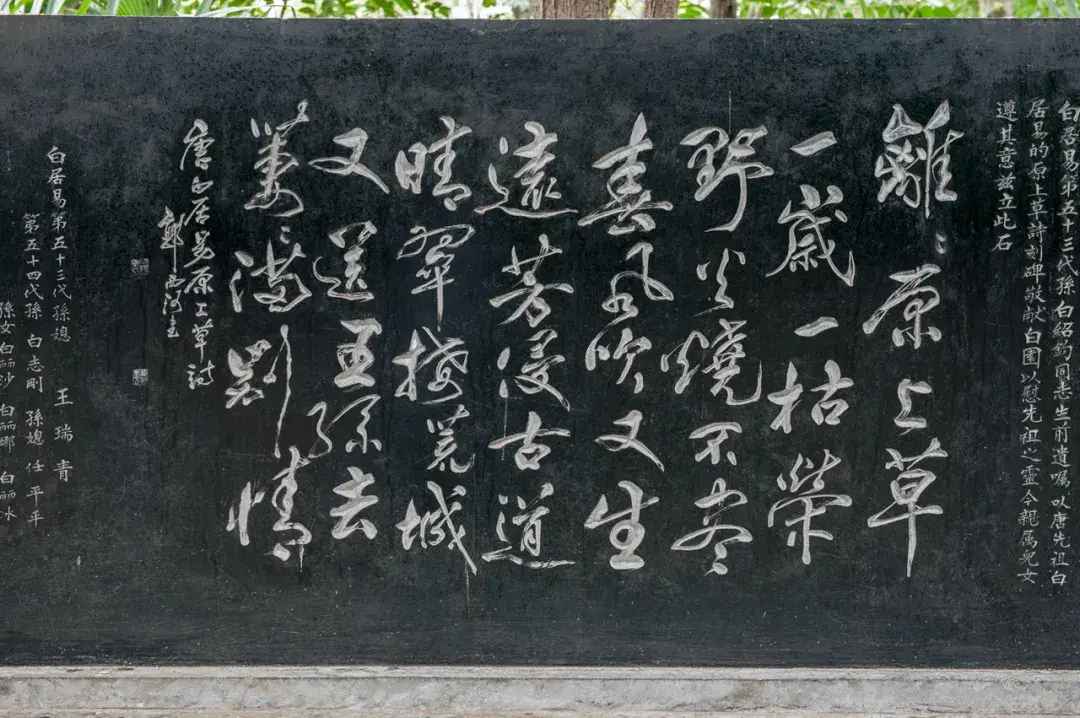 白居易第五十三代孫白紹鈞同志生前遺囑以唐先祖白
居易的原上草詩刻碑敬献白園以慰先祖之靈今親属兒女
遵其意兹立此石
離〻原上草
一歲一枯榮
野火燒不盡
春風吹又生
遠芳侵古道
晴翠接荒城
又送王孫去
萋〻滿別情
唐白居易原上草詩
鄭西河
白居易第五十三代孫媳 王瑞青
第五十四代孫 白志剛 孫媳 任平平
孫女 白丽沙 白丽娜 白丽冰